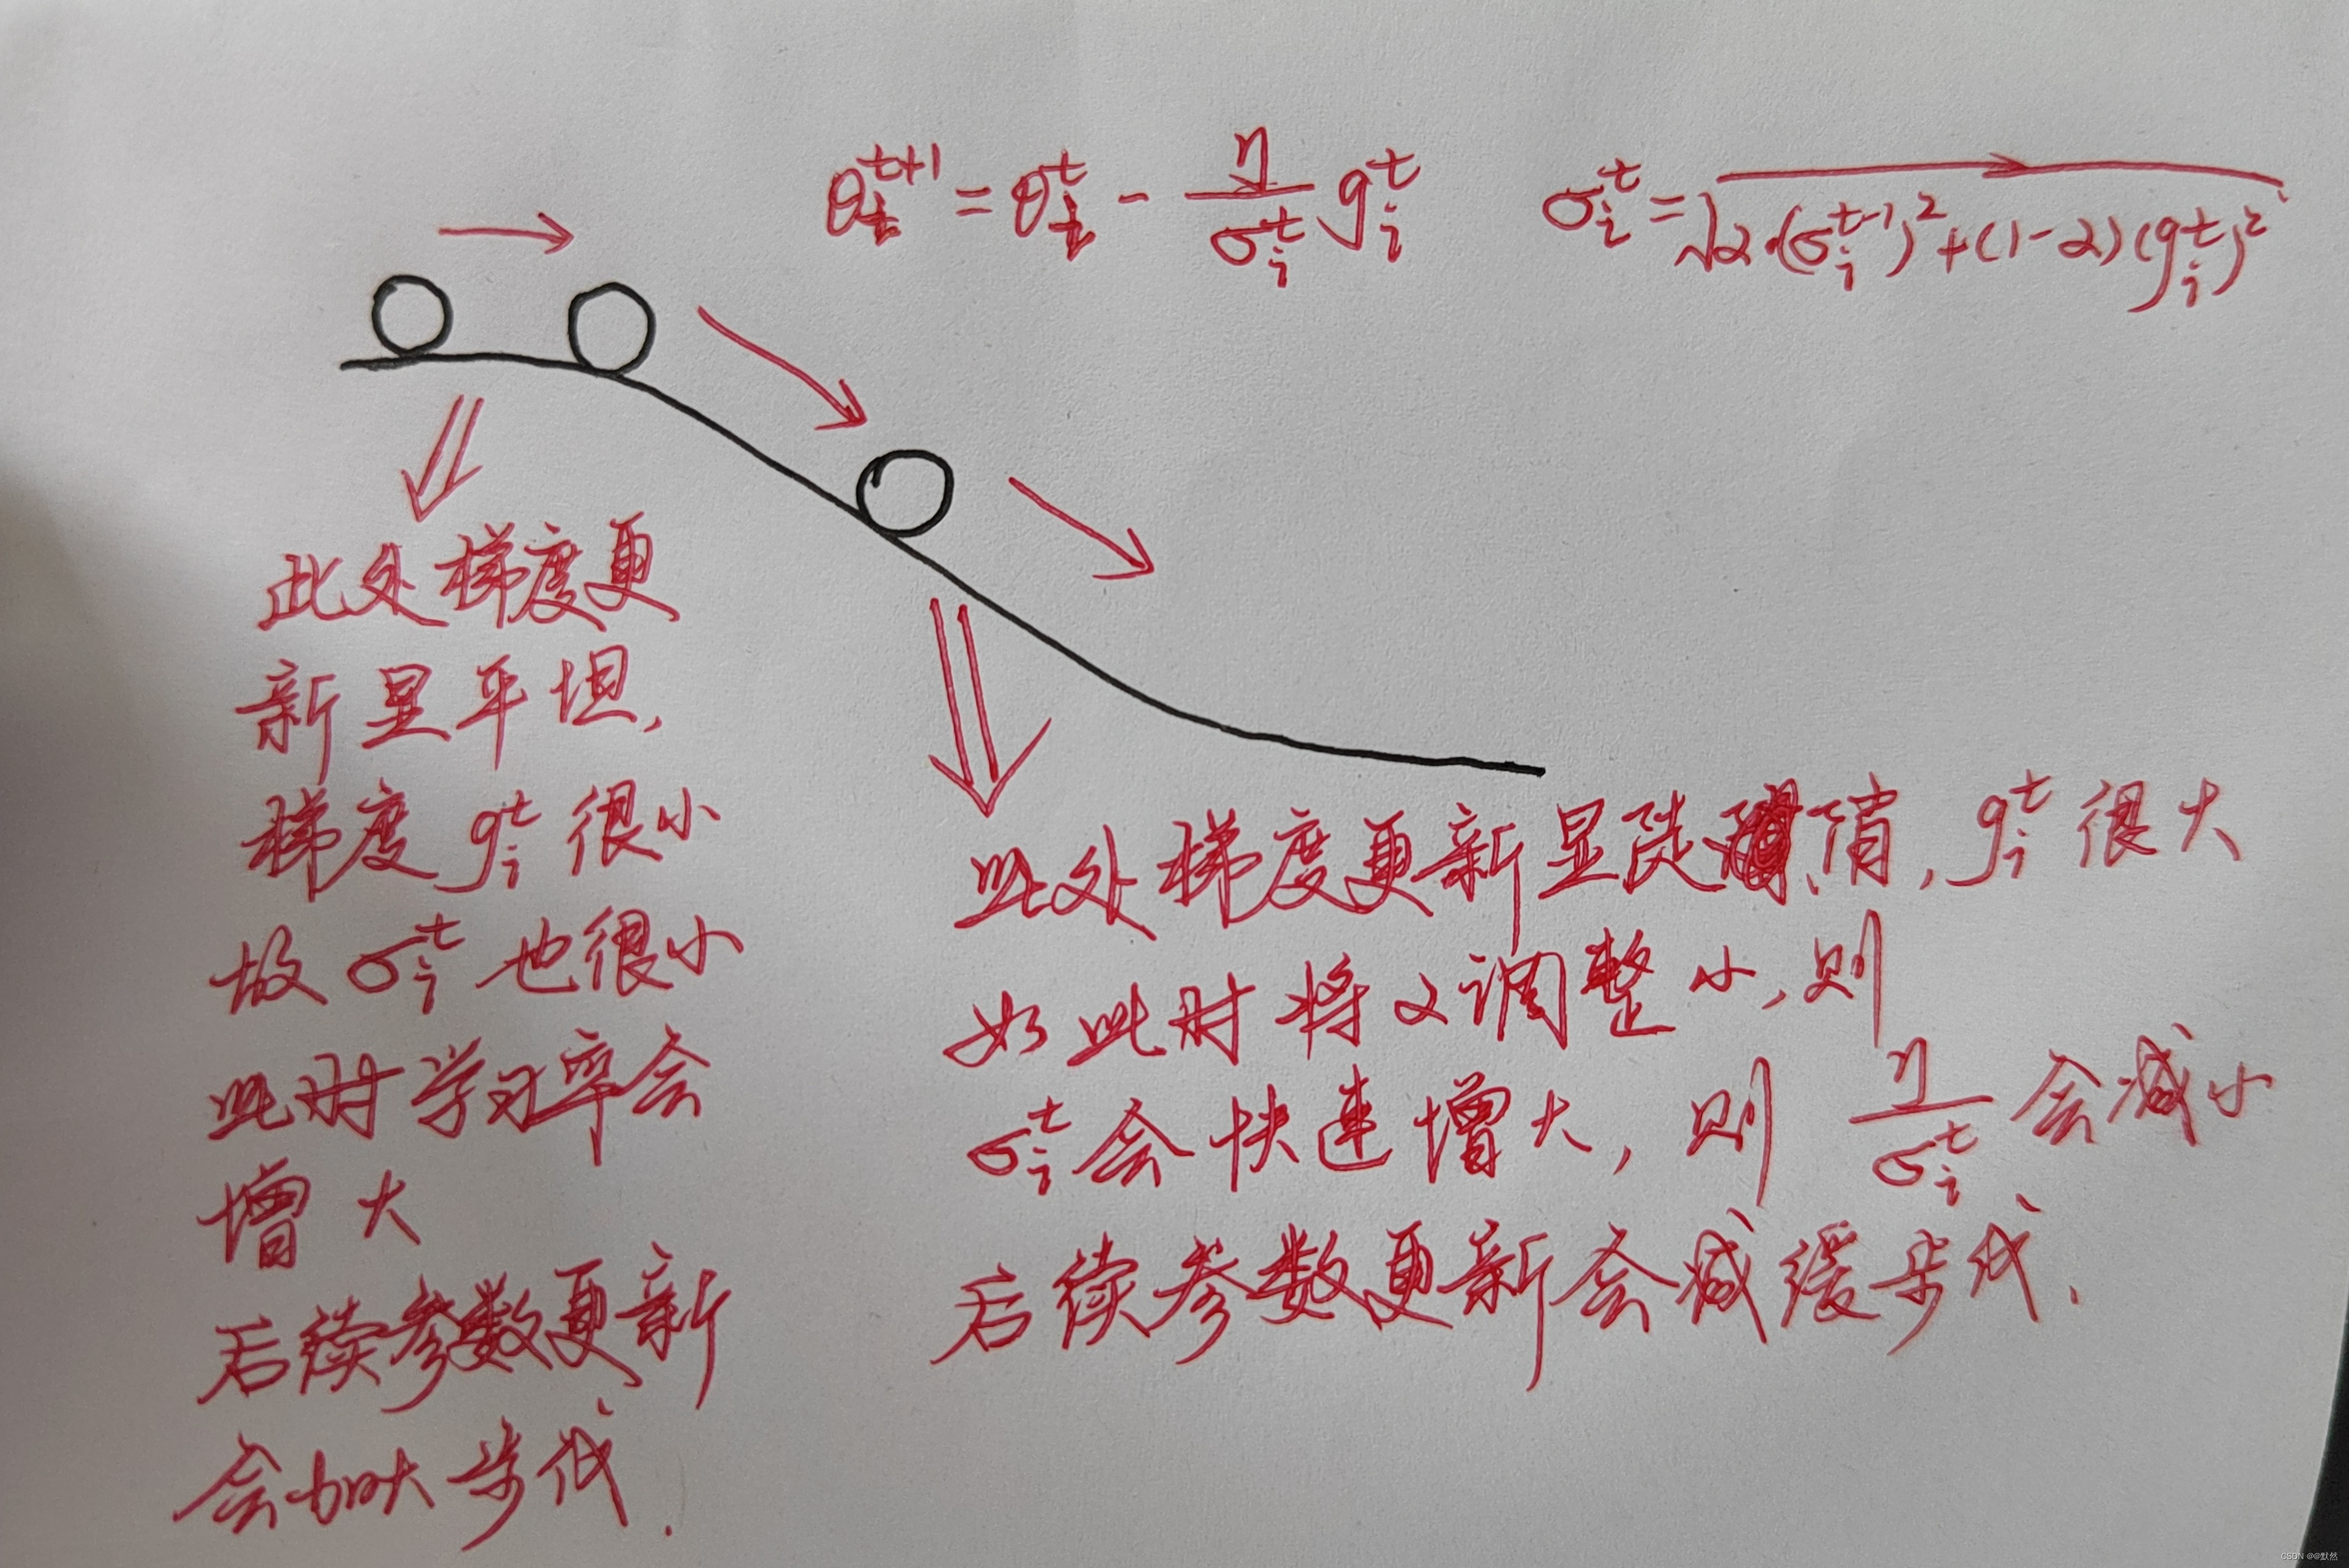 θᵢᵗ⁺¹ = θᵢᵗ - η/σᵢᵗ gᵢᵗ
σᵢᵗ = √α·(σᵢᵗ⁻¹)²+(1-α)(gᵢᵗ)²
此处梯度更
新显平坦,
梯度 gᵢᵗ 很小
故 σᵢᵗ 也很小
此时学习率会
增大
后续参数更新
会加大步伐.
此处梯度更新显陡峭, gᵢᵗ 很大
如此时将α调整小, 则
σᵢᵗ 会快速增大, 则 η/σᵢᵗ 会减小
后续参数更新会减缓步伐.
CSDN @@默然